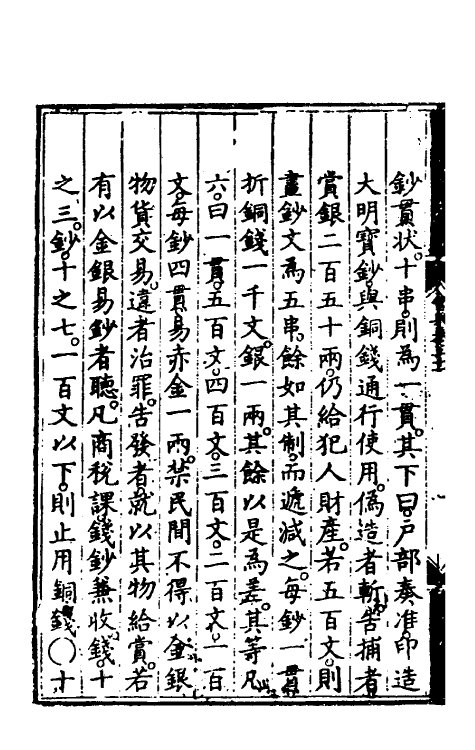 鈔貫狀。十串。則為一貫。其下曰。戶部奏准。印造
大明寶鈔。與銅錢通行使用。偽造者斬。告捕者
賞銀二百五十兩。仍給犯人財產。若五百文。則
畫鈔文為五串。餘如其制。而遞減之。每鈔一貫
折銅錢一千文。銀一兩。其餘以是為差。其等凡
六。曰一貫。五百文。四百文。三百文。二百文。一百
文。每鈔四貫。易赤金一兩。禁民間不得以金銀
物貨交易。違者治罪。告發者就以其物給賞。若
有以金銀易鈔者聽。凡商稅課錢鈔兼收。錢十
之三。鈔十之七。一百文以下。則止用銅錢〇十